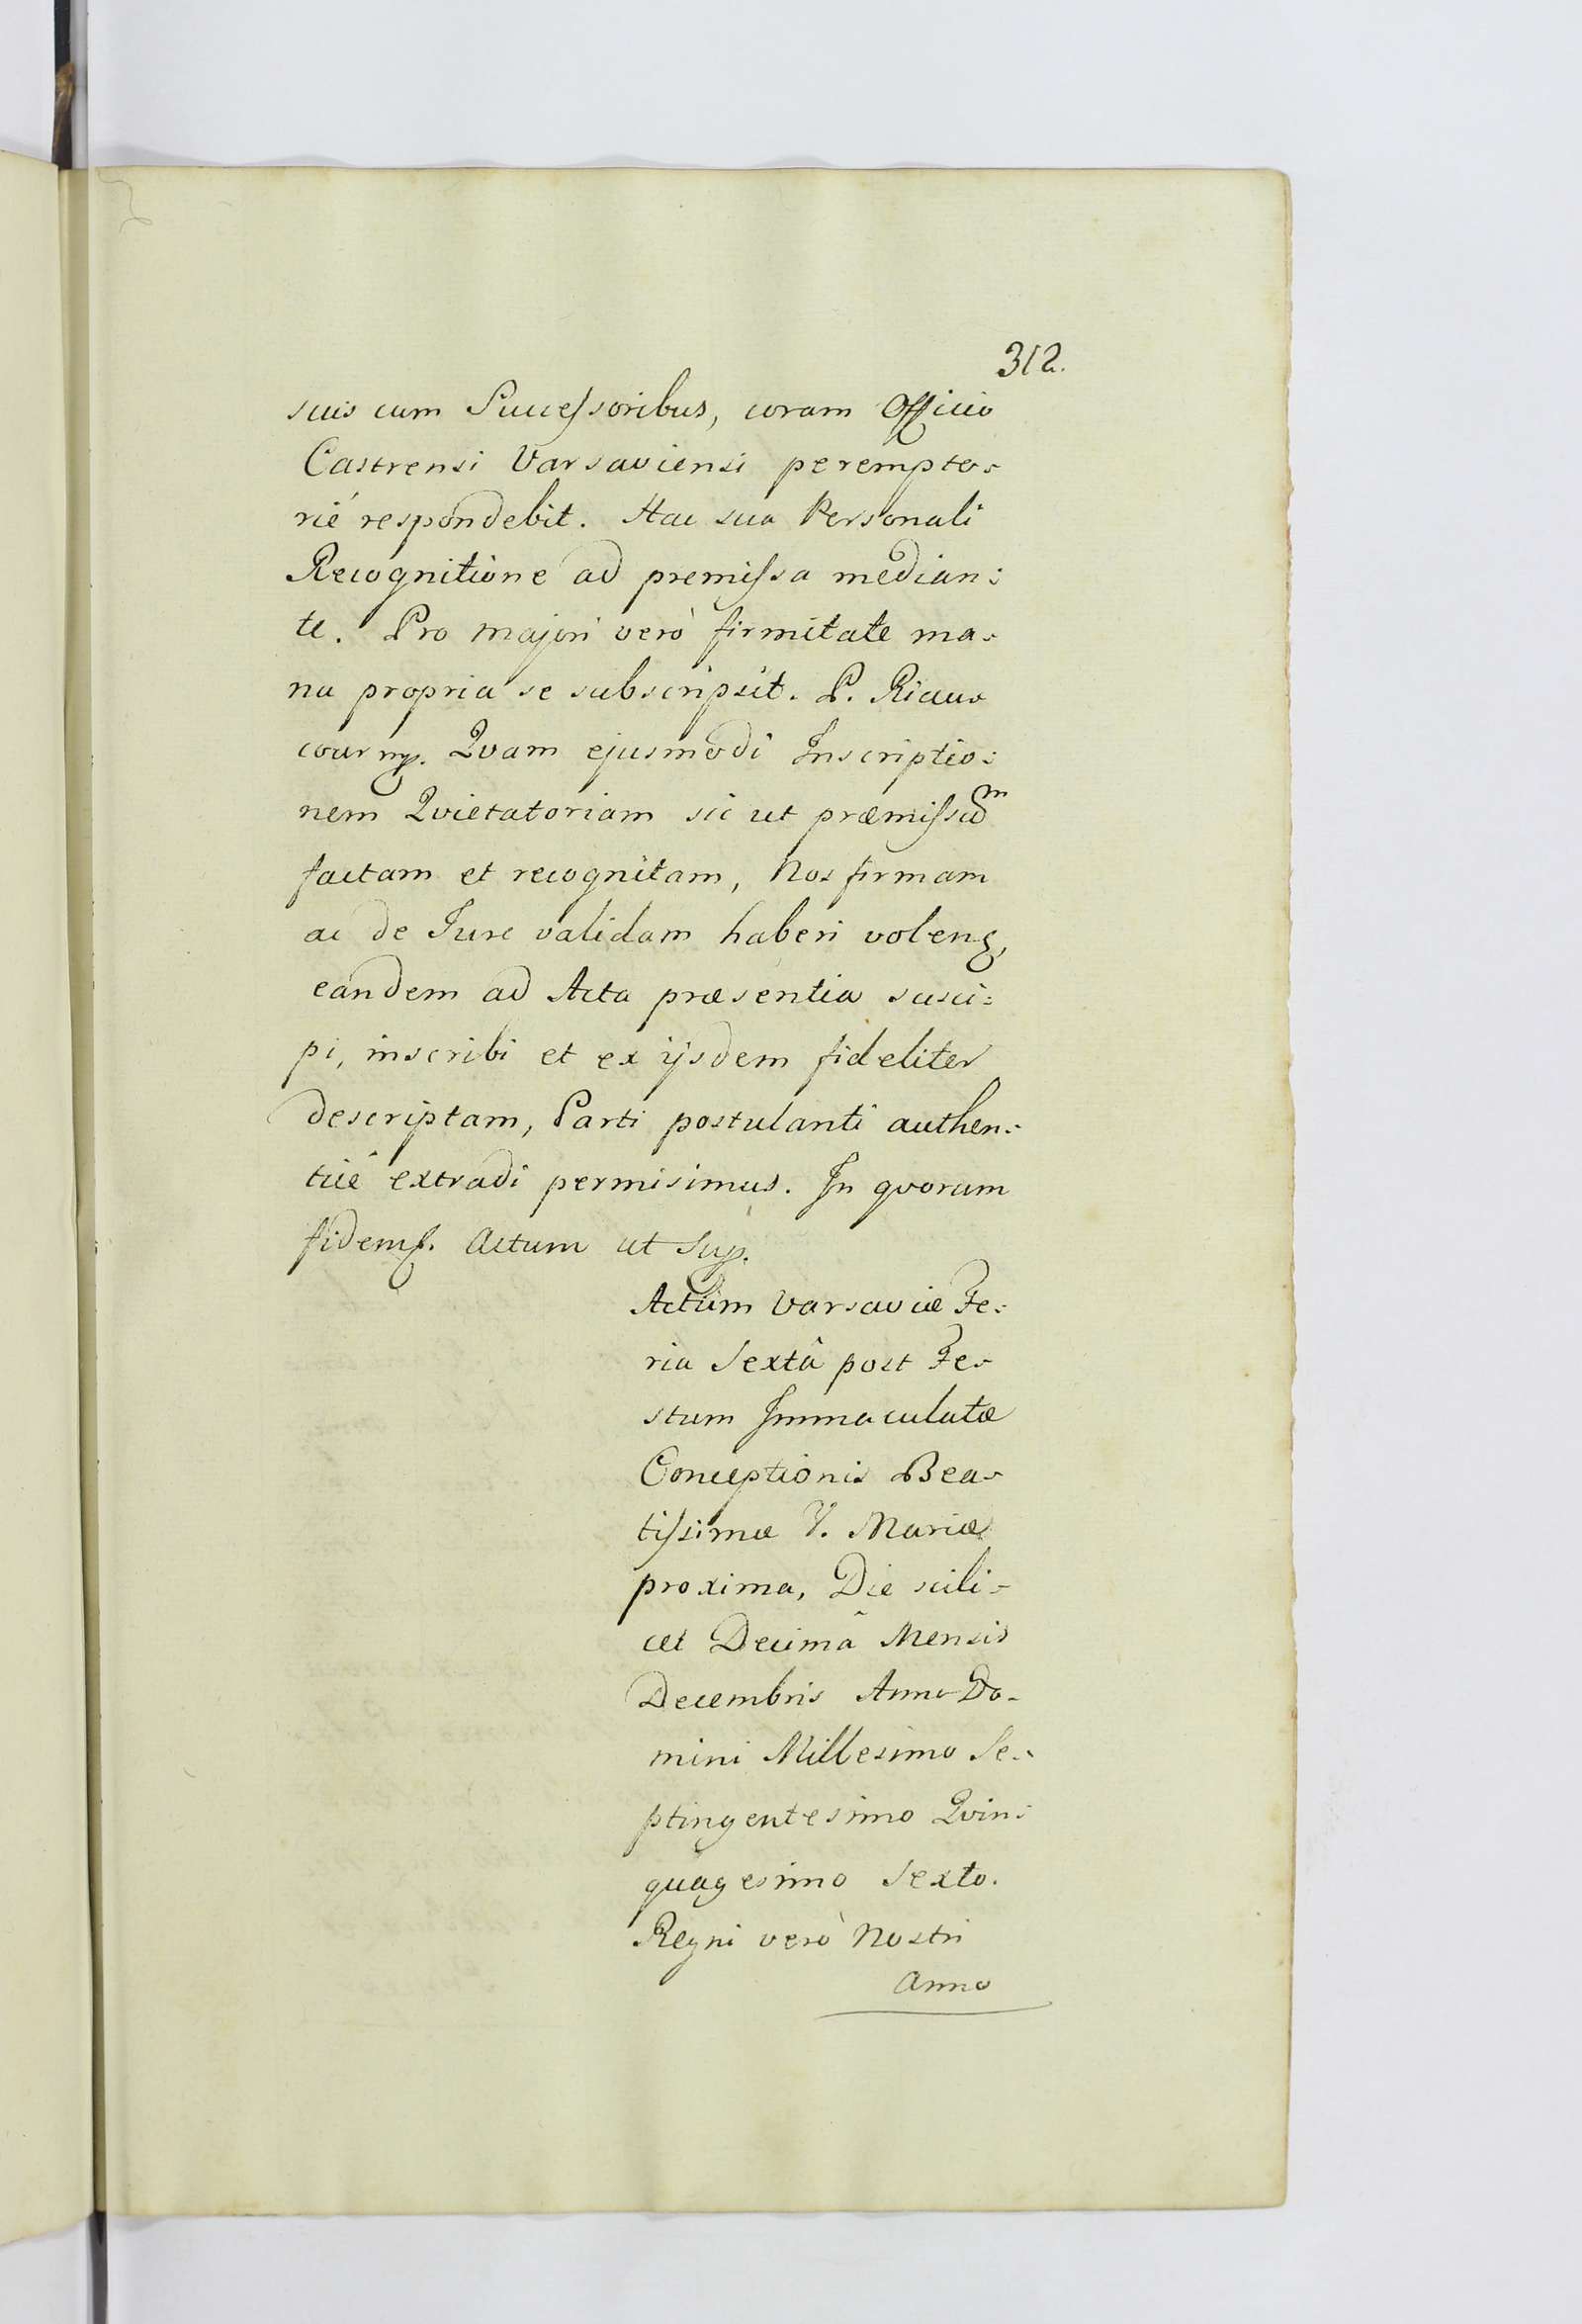 312.
suis cum Successoribus, coram Officio
Castrensi Varsaviensi perempto-
rié respondebit. Hac sua Personali
Recognitione ad premissa median:
te. Pro majori verò firmitate ma-
nu propria se subscripsit. P. Ricau-
cour mp. Qvam ejusmodi Inscriptio:
nem Qvietatoriam sic ut præmissum
factam et recognitam, Nos firmam
ac de Jure validam haberi volens,
eandem ad Acta præsentia susci:
pi, inscribi et ex ijsdem fideliter
descriptam, Parti postulanti authen:
ticé extradi permisimus. In qvorum
fidem. Actum ut Sup.
Actum Varsaviæ Fe:
ria Sextâ post Fe-
stum Immaculatæ
Conceptionis Bea-
tissimæ V. Mariæ
proxima, Die scili-
cet Decimâ Mensis
Decembris Anno Do-
mini Millesimo Se-
ptingentesimo Qvin:
quagesimo Sexto.
Regni verò Nostri
Anno